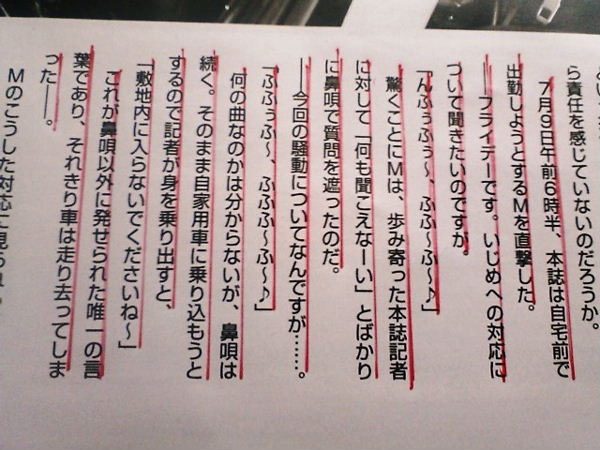 ら責任を感じていないのだろうか。
7月9日午前6時半、本誌は自宅前で
出勤しようとするMを直撃した。
――フライデーです。いじめへの対応に
ついて聞きたいのですが。
「んふぅふぅ〜、ふふ〜ふ〜♪」
驚くことにMは、歩み寄った本誌記者
に対して「何も聞こえなーい」とばかり
に鼻唄で質問を遮ったのだ。
――今回の騒動についてなんですが……。
「ふふぅふ〜、ふふふ〜ふ〜♪」
何の曲なのかは分からないが、鼻唄は
続く。そのまま自家用車に乗り込もうと
するので記者が身を乗り出すと、
「敷地内に入らないでくださいね〜」
これが鼻唄以外に発せられた唯一の言
葉であり、それきり車は走り去ってしま
った――。
Mのこうした対応に見られ